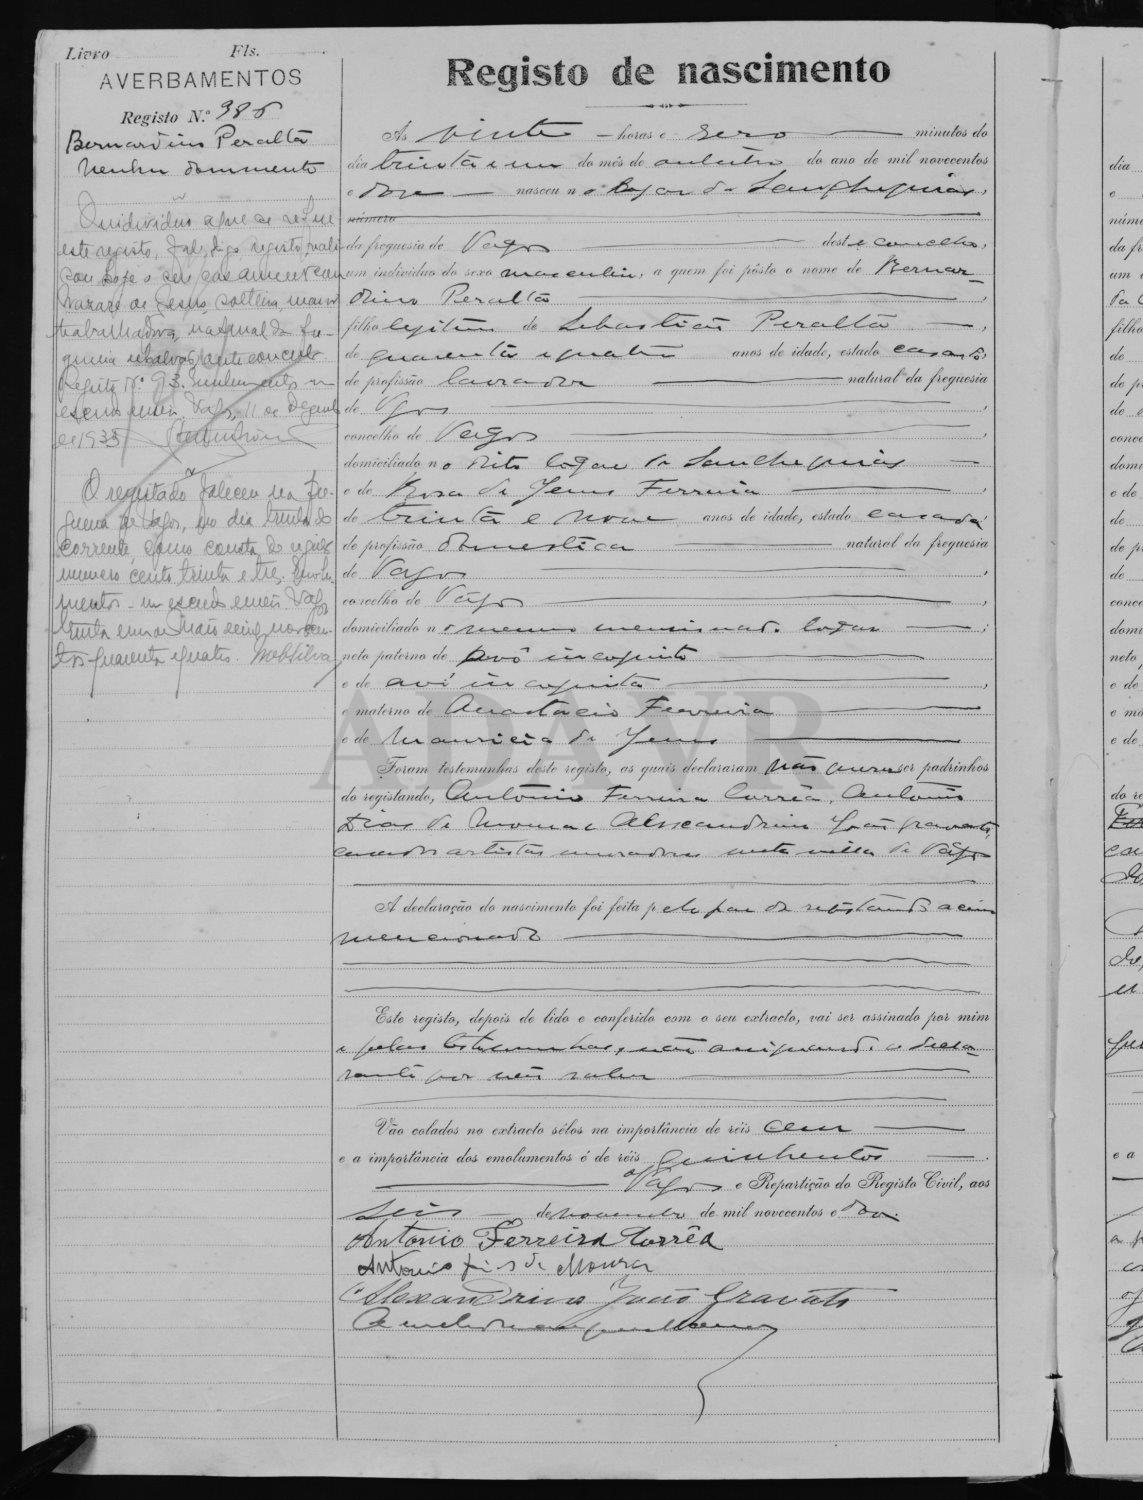 Livro Fls.
AVERBAMENTOS
Registo N.º 386
Bernardino Peralta
Nenhum documento
O individuo a que se refere
este registo, digo, registo, reali-
sou hoje o seu casamento com
Nazaré de Jesus, solteira, maior
trabalhadora, natural da fre-
guesia deste concelho.
Registo n.º 93. Emolumentos um
escudo e meio. Vagos, 11 de Dezembro
de 1935
O registado faleceu na fre-
guesia de Vagos, no dia trinta do
corrente, como consta do registo
numero cento trinta e tres. Emolu-
mentos - um escudo e meio. Vagos
trinta e um de Maio de mil novecen-
tos quarenta e quatro.
Registo de nascimento
Às vinte horas e zero minutos do
dia trinta e um do mês de outubro do ano de mil novecentos
e doze nasceu no logar de Sanchequias,
número
da freguesia de Vagos deste concelho,
um indivíduo do sexo masculino, a quem foi pôsto o nome de Bernar-
dino Peralta,
filho legitimo de Sebastião Peralta,
de quarenta e quatro anos de idade, estado casado,
de profissão lavrador natural da freguesia
de Vagos,
concelho de Vagos,
domiciliado no dito logar de Sanchequias
e de Rosa de Jesus Ferreira,
de trinta e nove anos de idade, estado casada,
de profissão domestica natural da freguesia
de Vagos,
concelho de Vagos,
domiciliado no mesmo mencionado logar;
neto paterno de avô incognito
e de avó incognita,
e materno de Anastacio Ferreira
e de Mauricia de Jesus
Foram testemunhas deste registo, as quais declararam não querer ser padrinhos
do registando, António Ferreira Corrêa, António
Dias de Moura e Alexandrino João Gravato,
casados artistas moradores nesta villa de Vagos
A declaração do nascimento foi feita pelo pae do registando acima
mencionado
Este registo, depois de lido e conferido com o seu extracto, vai ser assinado por mim
e pelas testemunhas, não assignando o decla-
rante por não saber
Vão colados no extracto sêlos na importância de réis cem
e a importância dos emolumentos é de réis quinhentos.
Vagos e Repartição do Registo Civil, aos
seis de novembro de mil novecentos e doze.
Antonio Ferreira Corrêa
Antonio Dias de Moura
Alexandrino João Gravato
ADAVR